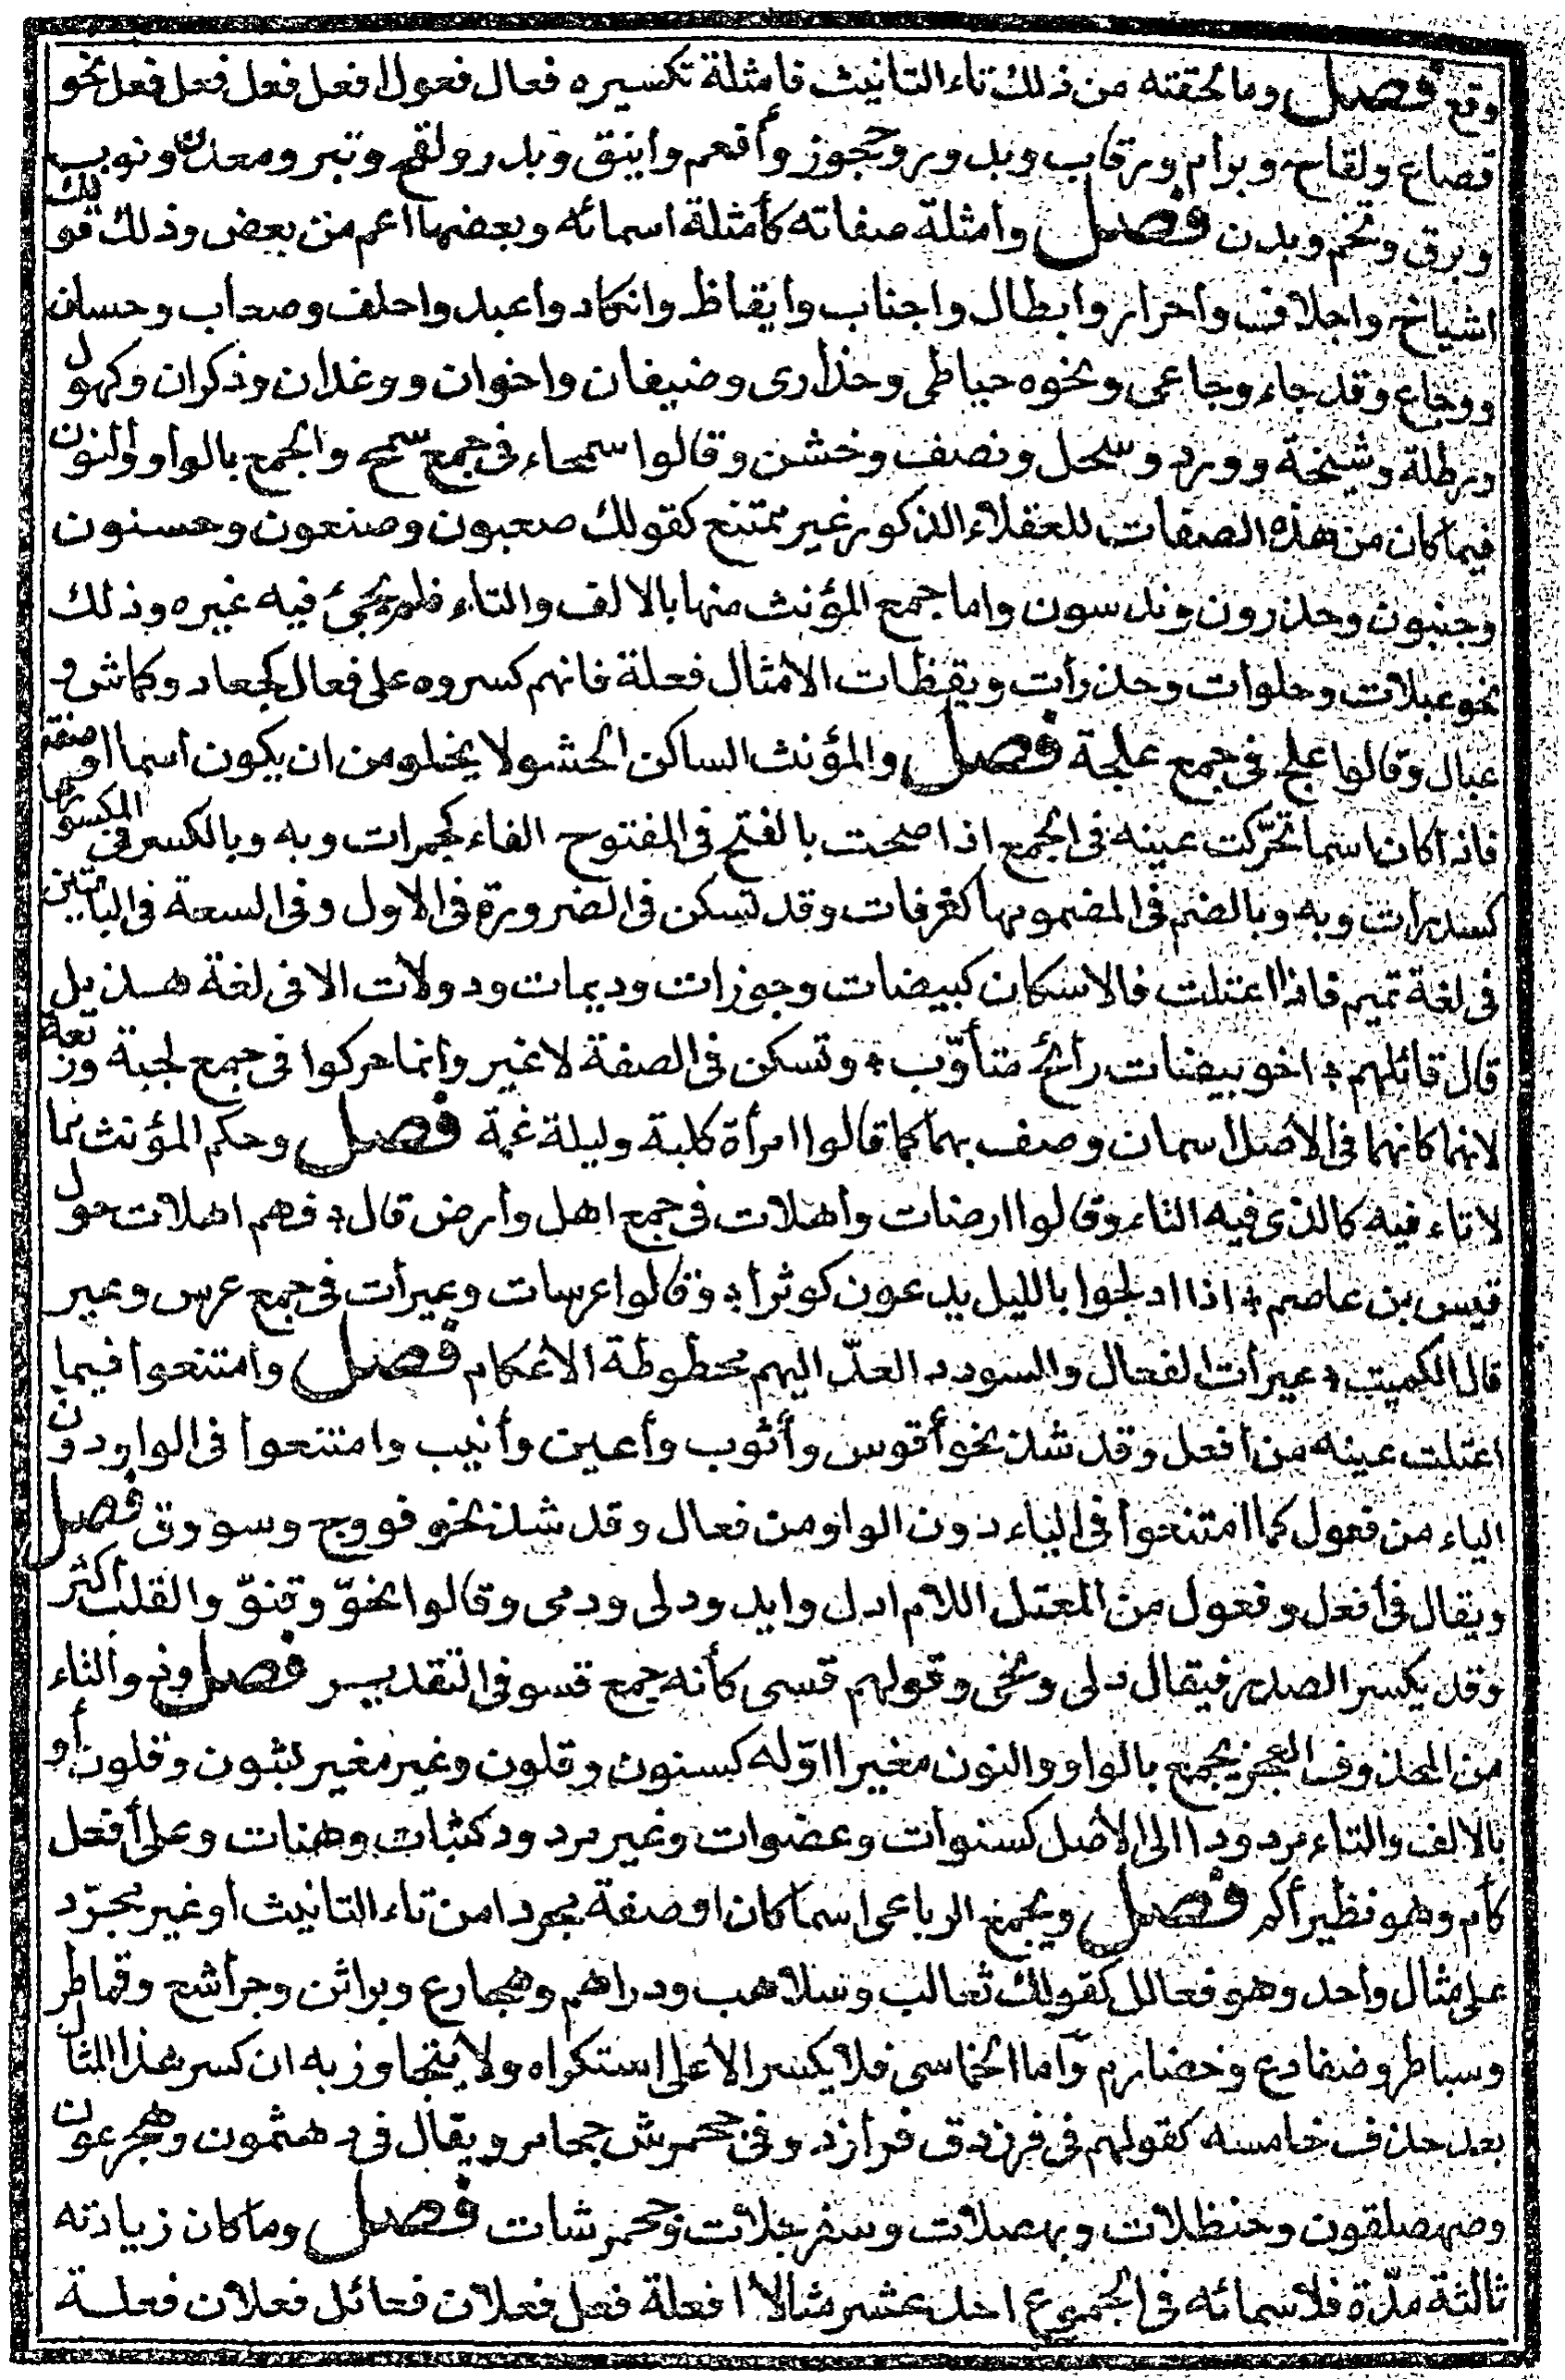 وقع فصل وما لحقته من ذلك تاء التانيث فامثلة تكسيره فعال فعول افعل فعل فعل فعل نحو
قصاع ولقاح وبرام ورقاب وبدور وحجوز وأقعم وأينق وبدر ولقح وتبر ومعدن ونوب
وبرق وتخم وبدن فصل وامثلة صفاته كأمثلة اسمائه وبعضها اعم من بعض وذلك قولك
اشياخ واجلاف واحرار وابطال واجناب وايقاظ وانكاد واعبد واحلف وصعاب وحسان
ووجاع وقد جاء وجاعى ونحوه حباطى وحذارى وضيفان واخوان ووغدان وذكران وكهول
ورطلة وشيخة وورد وسحل ونصف وخشن وقالوا سمحاء فى جمع سمح والجمع بالواو والنون
فيما كان من هذه الصفات للعقلاء الذكور غير ممتنع كقولك صعبون وصنعون وحسنون
وجنبون وحذرون وندسون واما جمع المؤنث منها بالالف والتاء فلم يجئ فيه غيره وذلك
نحو عبلات وحلوات وحذرات ويقظات الا مثال فعلة فانهم كسروه على فعال كجعاد وكماش و
عبال وقالوا علج فى جمع علجة فصل والمؤنث الساكن الحشو لا يخلو من ان يكون اسما او صفة
فاذا كان اسما تحرّكت عينه فى الجمع اذا صحت بالفتح فى المفتوح الفاء كجمرات وبه وبالكسر فى المكسورها
كسدرات وبه وبالضم فى المضمومها كغرفات وقد تسكن فى الضرورة فى الاول وفى السعة فى الباقيين
فى لغة تميم فاذا اعتلت فالاسكان كبيضات وجوزات وديمات ودولات الا فى لغة هذيل
قال قائلهم ؛ اخو بيضات رائح متأوّب ؛ وتسكن فى الصفة لا غير وانما حركوا فى جمع لجبة وربعة
لانهما كانهما فى الاصل اسمان وصف بهما كما قالوا امرأة كلبة وليلة غمة فصل وحكم المؤنث مما
لا تاء فيه كالذى فيه التاء وقالوا ارضات وأهلات فى جمع اهل وأرض قال ؛ فهم اهلات حول
قيس بن عاصم ؛ اذا ادلجوا بالليل يدعون كوثرا ؛ وقالوا عرسات وعيرات فى جمع عرس وعير
قال الكميت ؛ عيرات الفعال والسودد العدّ اليهم محطوطة الاعكام فصل وامتنعوا فيما
اعتلت عينه من افعل وقد شذ نحو أقوس وأثوب وأعين وأنيب وامتنعوا فى الواو دون
الياء من فعول كما امتنعوا فى الياء دون الواو من فعال وقد شذ نحو فووج وسووق فصل
ويقال فى أفعل وفعول من المعتل اللام ادل وايد ودلى ودمى وقالوا نحوّ وقنوّ والقلب أكثر
وقد يكسر الصدر فيقال دلى ونحى وقولهم قسى كأنه جمع قسو فى التقدير فصل وذو التاء
من المحذوف العجز يجمع بالواو والنون مغيرا اوّله كسنون وقلون وغير مغير كثبون وقلون أو
بالالف والتاء مردودا الى الاصل كسنوات وعضوات وغير مردود كثبات وهنات وعلى أفعل
كآم وهو نظير أكم فصل ويجمع الرباعى اسما كان او صفة مجردا من تاء التانيث او غير مجرّد
على مثال واحد وهو فعالل كقولك ثعالب وسلاهب ودراهم وهجارع وبراثن وجراشع وقماطر
وسباطر وضفادع وخضارم وأما الخماسى فلا يكسر الا على استكراه ولا يتجاوز به ان كسر هذا المثال
بعد حذف خامسه كقولهم فى فرزدق فرازد وفى جحمرش جحامر ويقال فى دهثمون وهجرعون
وصهصلقون وحنظلات وبهصلات وسفرجلات وجحمرشات فصل وما كان زيادته
ثالثة مدّة فلاسمائه فى الجموع احد عشر مثالا افعلة فعل فعلان فعائل فعلان فعلة